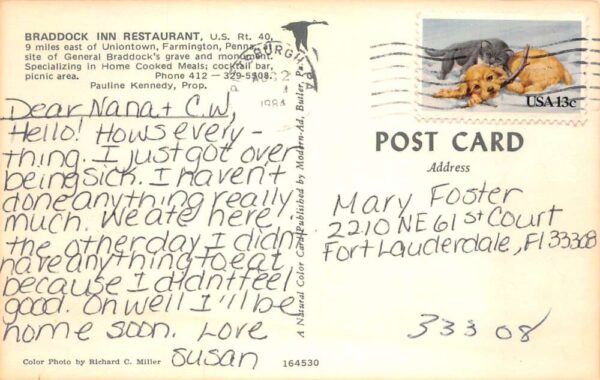 BRADDOCK INN RESTAURANT, U.S. Rt. 40,
9 miles east of Uniontown, Farmington, Penna. at
site of General Braddock's grave and monument.
Specializing in Home Cooked Meals; cocktail bar,
picnic area. Phone 412 — 329-5508.
Pauline Kennedy, Prop.
1984
USA 13c
Dear Nana + C.W,
Hello! Hows every-
thing. I just got over
being sich. I haven't
done anything really
much. We ate here
the other day I didnt
have anything to eat
because I didnt feel
good. Oh well I'll be
home soon. Love
Susan
A Natural Color Card Published by Modern-Ad, Butler, Pa.
POST CARD
Address
Mary Foster
2210 NE 61st Court
Fort Lauderdale, Fl 33308
33308
Color Photo by Richard C. Miller
164530